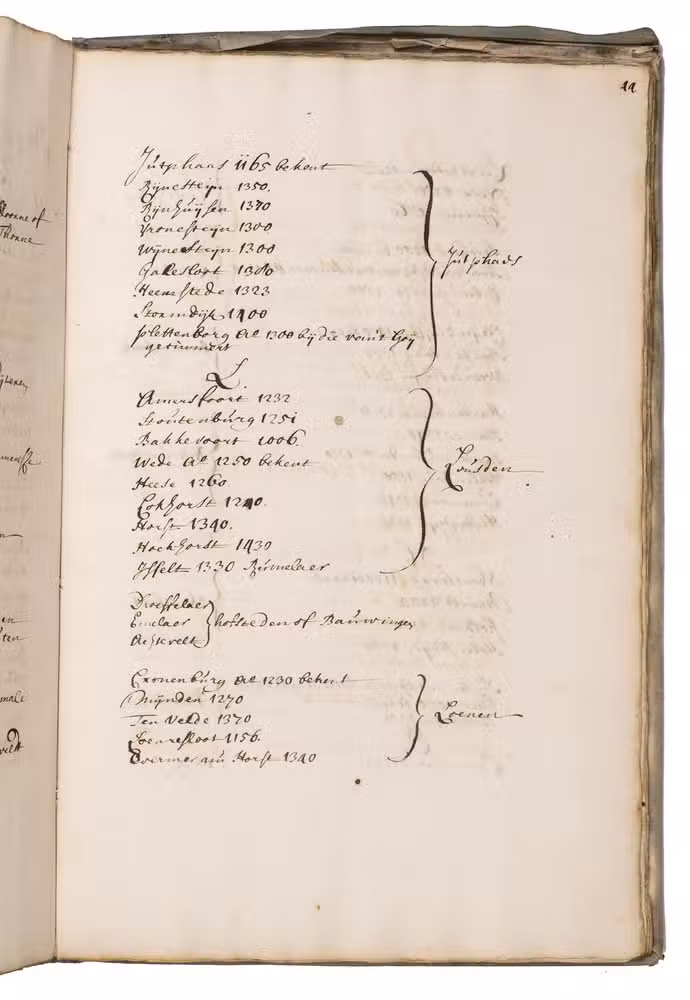 44
Jutphaas 1165 bekent
Rijnesteijn 1350.
Rijnhuijsen 1370
Vronesteijn 1300
Wijnesteijn 1300
Galesloot 1300
Heemstede 1323
Stormdijk 1400
Plettenborg Ao 1300 bij die van't Goij
getimmert
Jutphaes
L
Amersfoort 1232
Stoutenburg 1251
Bakkevoort 1006.
Wede Ao 1250 bekent
Heese 1260.
Lokhorst 1240.
Horst 1340.
Hoekhorst 1430
Isselt 1330
Leusden
Droeffelaer
Emelaer
Achtevelt
hofsteden of Bauwinge
Cronenburg Ao 1230 bekent
Mijnden 1270
Ten Velde 1370
Loenresloot 1156.
Horst 1340
Loenen